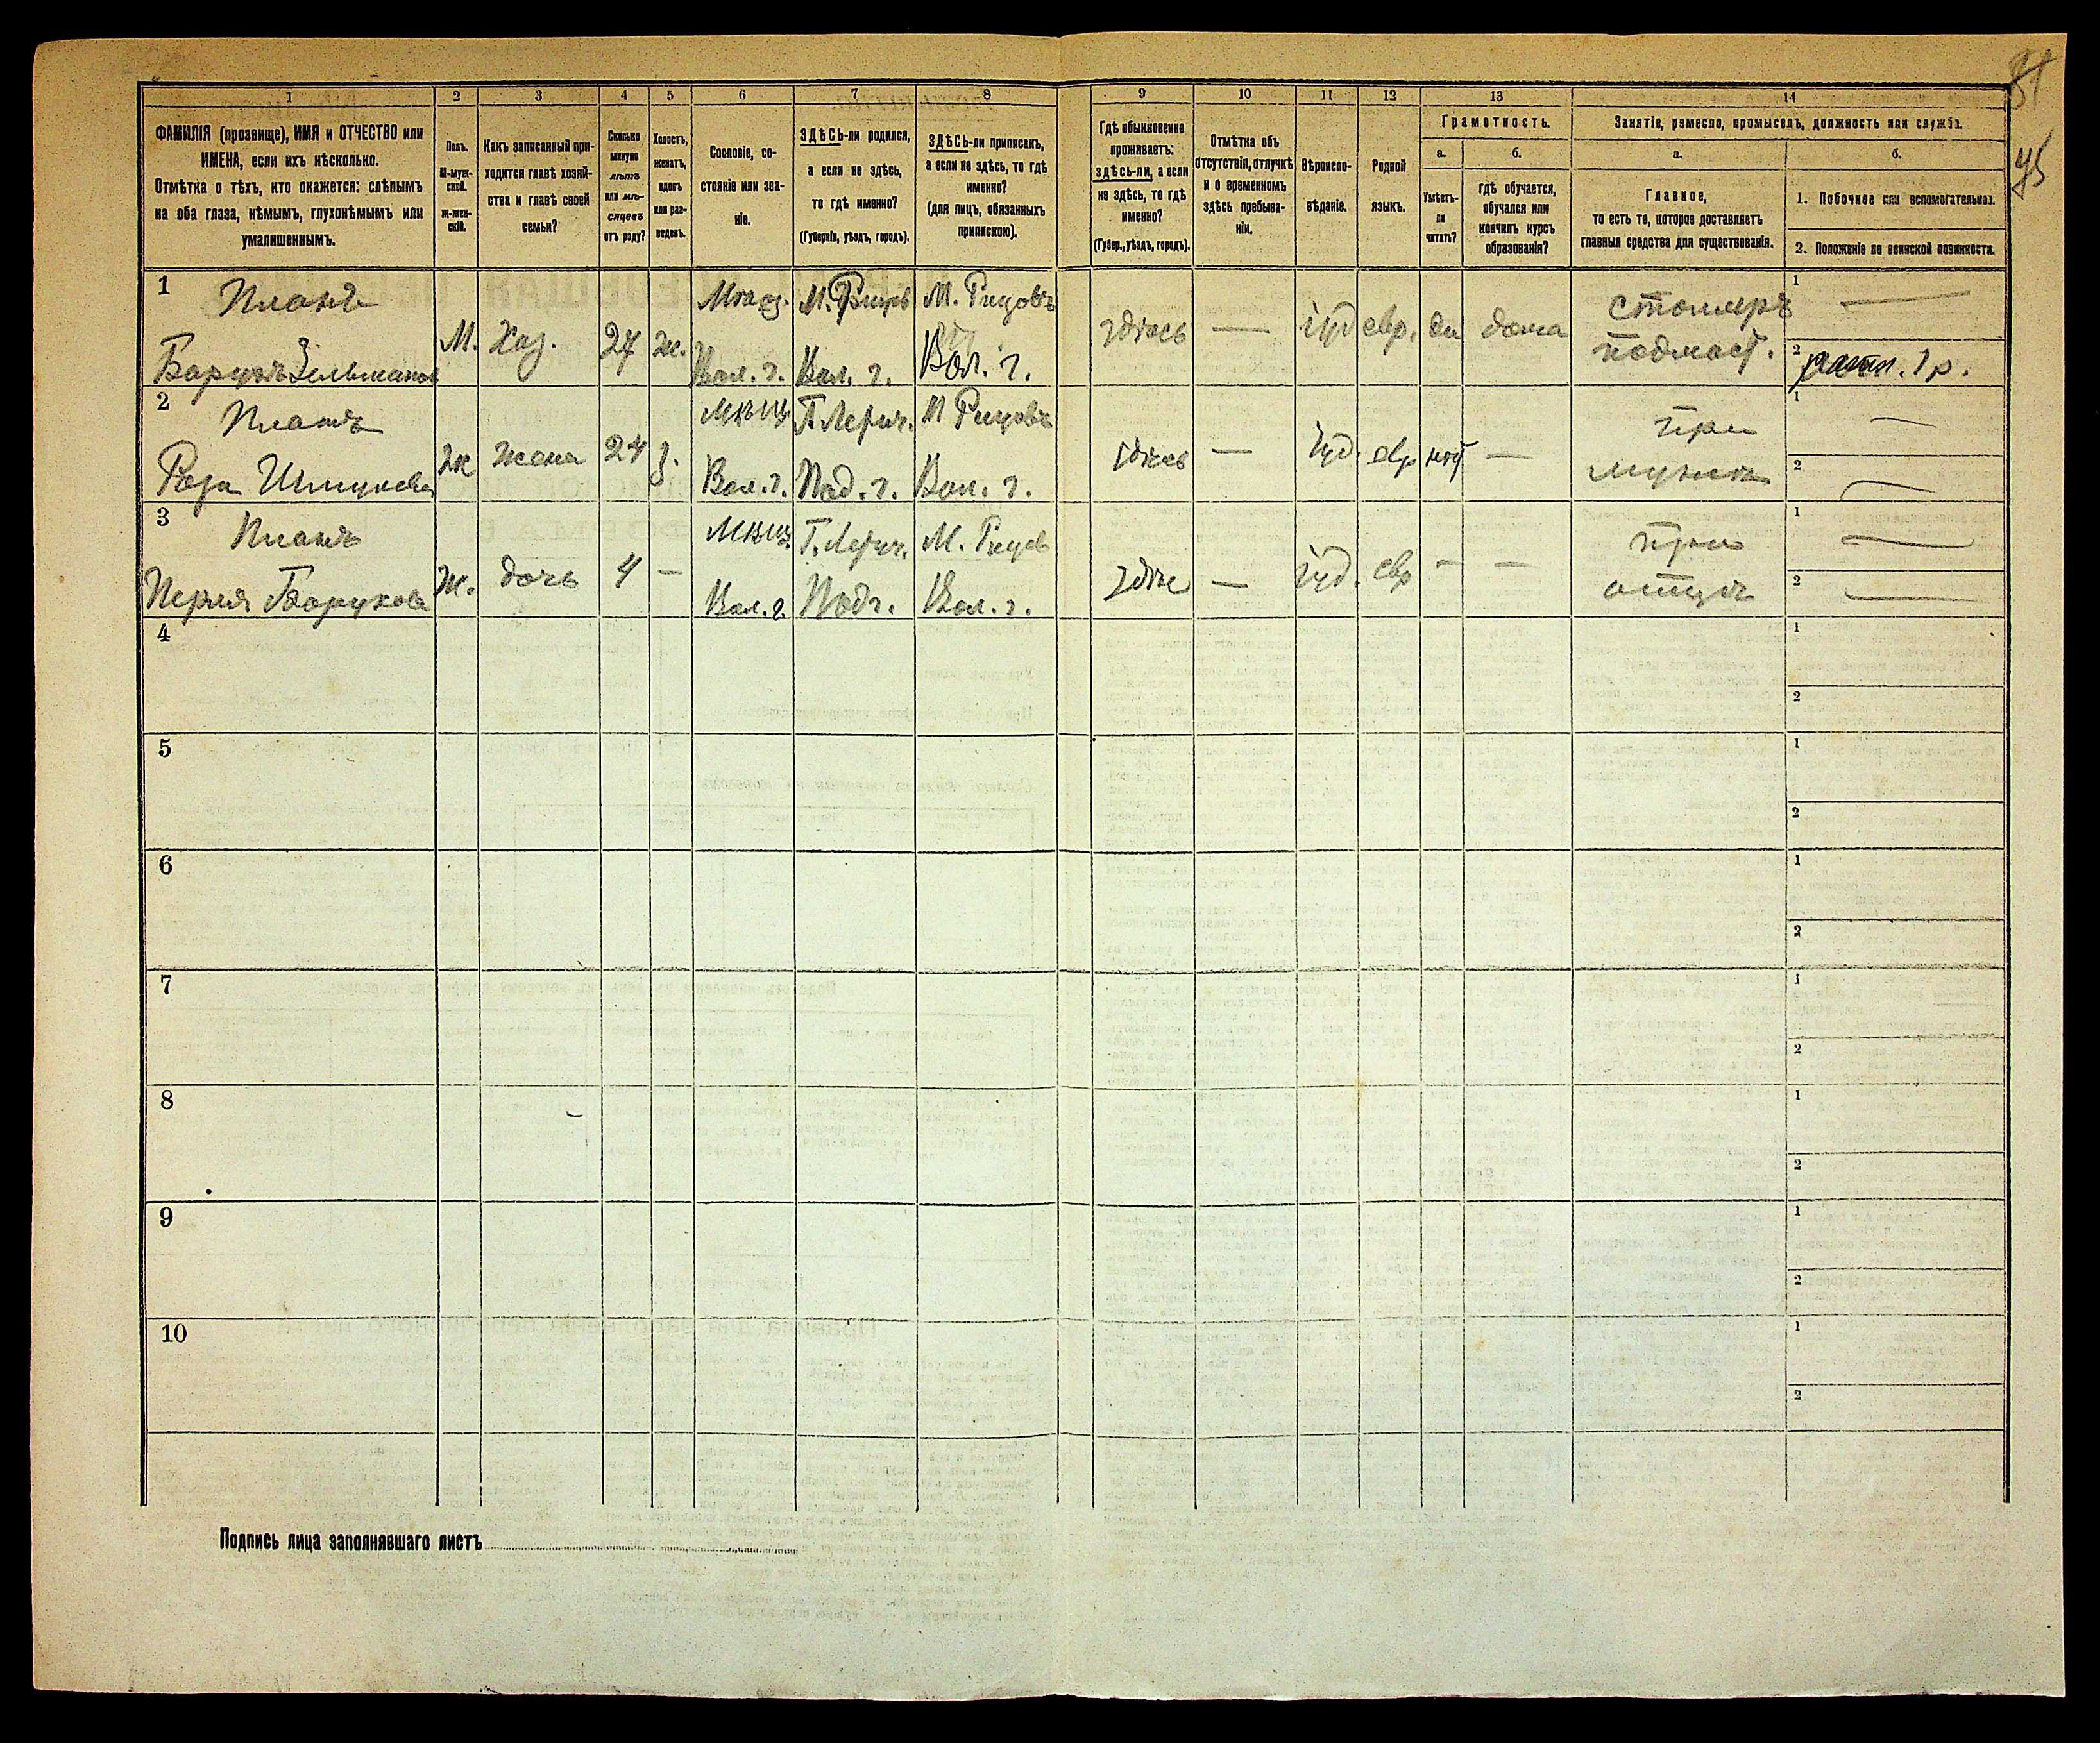 81
95
1 2 3 4 5 6 7 8 9 10 11 12 13 14
ФАМИЛІЯ (прозвище), ИМЯ и ОТЧЕСТВО или
ИМЕНА, если ихъ нѣсколько.
Отмѣтка о тѣхъ, кто окажется: слѣпымъ
на оба глаза, нѣмымъ, глухонѣмымъ или
умалишеннымъ.
Полъ.
М-муж-
ской.
Ж-жен-
скій.
Какъ записанный при-
ходится главѣ хозяй-
ства и главѣ своей
семьи?
Сколько
минуло
лѣтъ
или мѣ-
сяцевъ
отъ роду?
Холостъ,
женатъ,
вдовъ
или раз-
веденъ.
Сословіе, со-
стояніе или зва-
ніе.
ЗДѢСЬ-ли родился,
а если не здѣсь,
то гдѣ именно?
(Губернія, уѣздъ, городъ).
ЗДѢСЬ-ли приписанъ,
а если не здѣсь, то гдѣ
именно?
(для лицъ, обязанныхъ
припискою).
Гдѣ обыкновенно
проживаетъ:
здѣсь-ли, а если
не здѣсь, то гдѣ
именно?
(Губер., уѣздъ, городъ).
Отмѣтка объ
отсутствіи, отлучкѣ
и о временномъ
здѣсь пребыва-
ніи.
Вѣроиспо-
вѣданіе.
Родной
языкъ.
Грамотность.
а.
Умѣетъ-
ли
читать?
б.
гдѣ обучается,
обучался или
кончилъ курсъ
образованія?
Занятіе, ремесло, промыселъ, должность или служба.
а.
Главное,
то есть то, которое доставляетъ
главныя средства для существованія.
б.
1. Побочное или вспомогательное.
2. Положеніе по воинской повинности.
1
Платъ
Борухъ Зельманов
М.
Хоз.
27
ж.
Вол. г.
Вол. г.
М. Рицовъ
Вол. г.
здѣсь
—
іуд
евр.
да
дома
столяръ
подмаст.
1 —
2 ратн. 1 р.
2
Платъ
Роза
Ж
жена
24
з.
Мѣщ.
Вол. г.
Под. г.
М Рицовъ
Вол. г.
здѣсь
—
іуд.
евр
нѣт
—
при
мужѣ
1 —
2 —
3
Платъ
Перля Борухова
Ж.
дочь
4
—
Мѣщ.
Вол. г.
Под г.
М. Рицов
Вол. г.
здѣс
—
іуд.
евр
—
—
при
отцѣ
1 —
2 —
4
1
2
5
1
2
6
1
2
7
1
2
8
1
2
9
1
2
10
1
2
Подпись лица заполнявшаго листъ